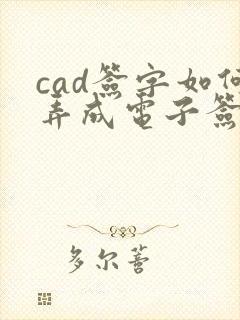 cad簽字如何
弄成電子簽
多尔蒈